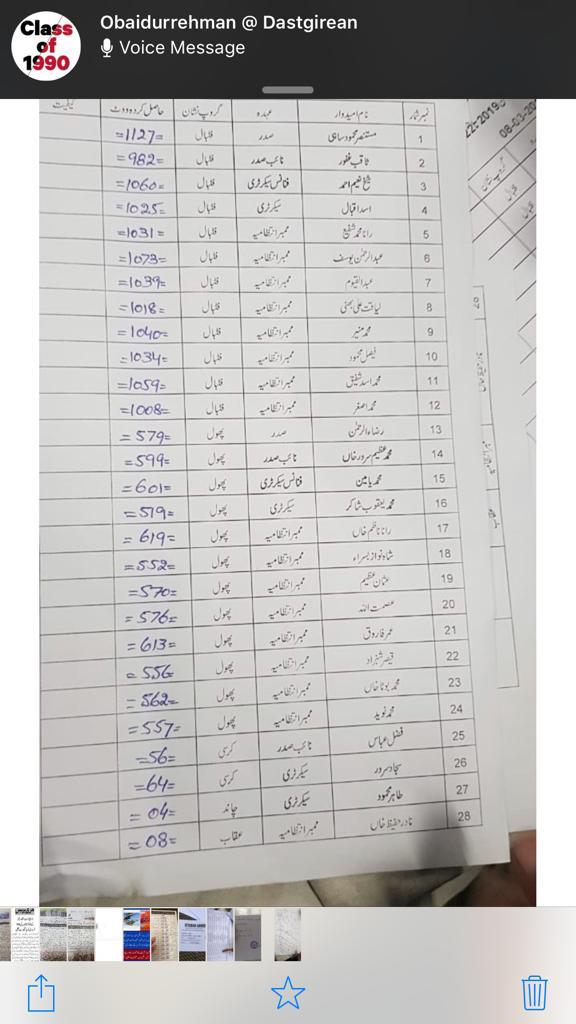 Class of 1990
Obaidurrehman @ Dastgirean
Voice Message
نمبر شمار نام امیدوار عہدہ گروپ نشان حاصل کردہ ووٹ کیفیت
1 مستنصر محمود ساہی صدر فٹبال =1127=
2 ثاقب غفور نائب صدر فٹبال =982=
3 شیخ نعیم احمد فنانس سیکرٹری فٹبال =1060=
4 اسد اقبال سیکرٹری فٹبال =1025=
5 رانا محمد شفیع ممبر انتظامیہ فٹبال =1031=
6 عبدالرحمٰن یوسف ممبر انتظامیہ فٹبال =1073=
7 عبدالقیوم ممبر انتظامیہ فٹبال =1039=
8 لیاقت علی بھٹی ممبر انتظامیہ فٹبال =1018=
9 محمد منیر ممبر انتظامیہ فٹبال =1040=
10 فیصل محمود ممبر انتظامیہ فٹبال =1034=
11 محمد اسد شفیق ممبر انتظامیہ فٹبال =1059=
12 محمد اصغر ممبر انتظامیہ فٹبال =1008=
13 رضاء الرحمٰن صدر پھول =579=
14 محمد عظیم سرور خاں نائب صدر پھول =599=
15 محمد یامین فنانس سیکرٹری پھول =601=
16 محمد یعقوب شاکر سیکرٹری پھول =519=
17 رانا ناظم خاں ممبر انتظامیہ پھول =619=
18 شاہ نواز بسراء ممبر انتظامیہ پھول =552=
19 عثمان عظیم ممبر انتظامیہ پھول =570=
20 عصمت اللہ ممبر انتظامیہ پھول =576=
21 عمر فاروق ممبر انتظامیہ پھول =613=
22 قیصر شہزاد ممبر انتظامیہ پھول =556=
23 محمد بوٹا خاں ممبر انتظامیہ پھول =562=
24 محمد نوید ممبر انتظامیہ پھول =557=
25 فضل عباس نائب صدر کرسی =56=
26 سجاد سرور سیکرٹری کرسی =64=
27 طاہر محمود سیکرٹری چاند =04=
28 نادر حفیظ خاں ممبر انتظامیہ عقاب =08=